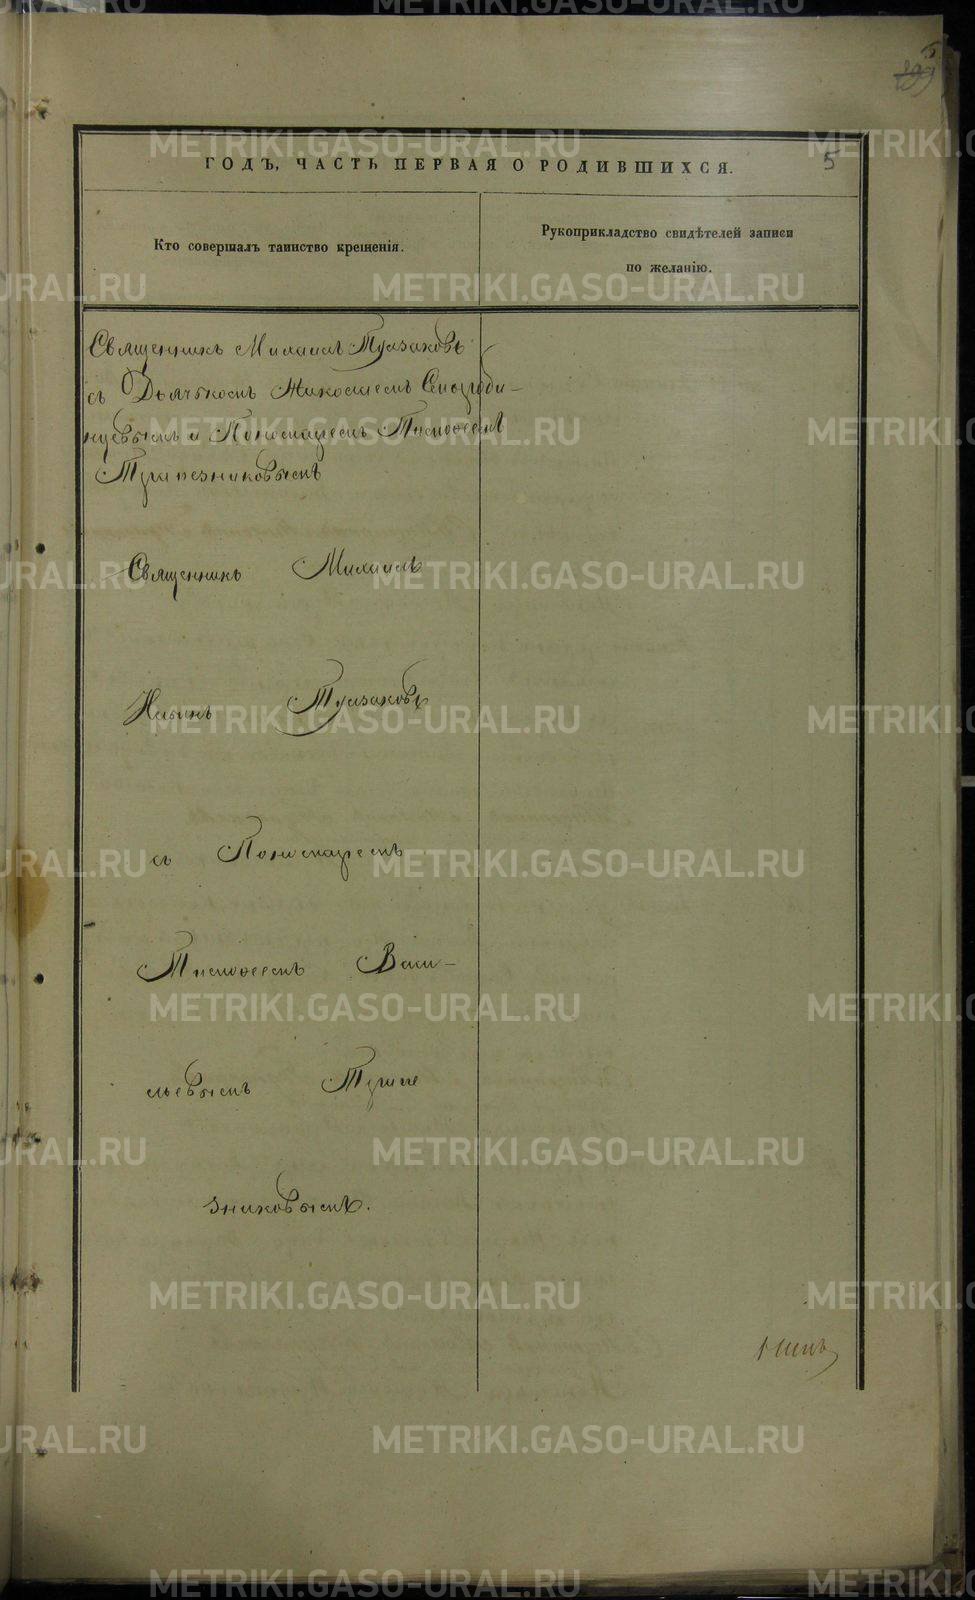 5
199
ГОДЪ, ЧАСТЬ ПЕРВАЯ О РОДИВШИХСЯ.
5
Кто совершалъ таинство крещенія.
Рукоприкладство свидѣтелей записи
по желанію.
Священникъ Михаилъ Тулзаковъ
съ Дьячкомъ Николаемъ
и Пономаремъ Тимофеемъ
Трапезниковымъ
Священникъ Михаилъ
Ильинъ Тулзаковъ
съ Пономаремъ
Тимофеемъ Васи-
льевымъ Трапе
зниковымъ.
METRIKI.GASO-URAL.RU